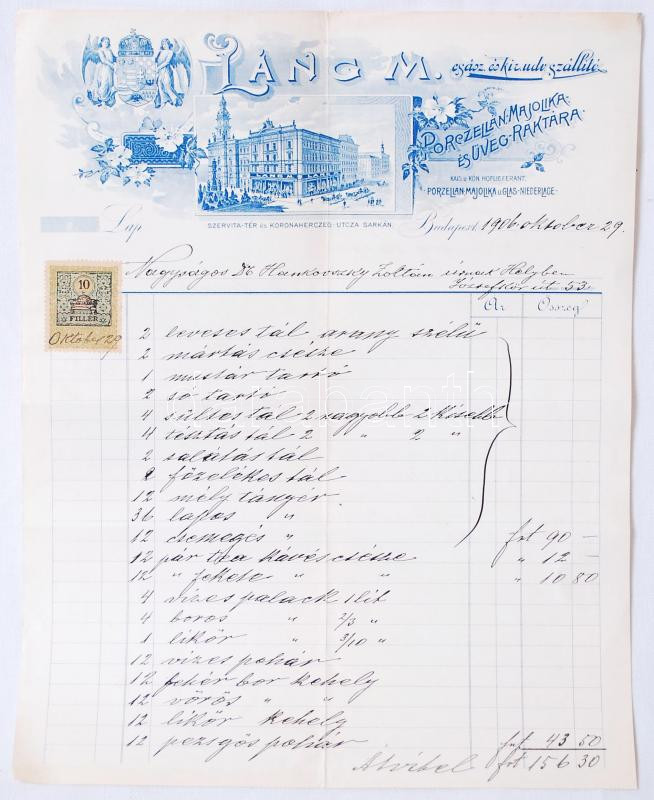 LÁNG M. csász. és kir. udv. szállító
PORCZELLÁN-MAJOLIKA-
ÉS ÜVEG-RAKTÁRA.
KAIS. U. KÖN. HOFLIEFERANT.
PORZELLAN-MAJOLIKA U. GLAS-NIEDERLAGE
SZERVITA-TÉR és KORONAHERCZEG-UTCZA SARKÁN.
Lap
Budapest, 1906 oktober 29.
Nagyságos Dr. Hankovszky Zoltán úrnak Helyben
Józsefkör út 53
10
FILLÉR
Oktober 29
Ár Összeg
2 leveses tál arany szélü
2 mártás csésze
1 mustár tartó
2 só tartó
4 sültes tál 2 nagyobb 2 kisebb
4 tésztás tál 2 " 2 "
2 salátás tál
2 főzelékes tál
12 mély tányér
36 lapos "
12 csemegés " frt 90 –
12 pár tea kávés csésze " 12 –
12 " fekete " " " 10 80
4 vizes palack 1 lit
4 boros " 2/3 "
1 likőr " 3/10 "
12 vizes pohár
12 fehér bor kehely
12 vörös " "
12 likőr kehely
12 pezsgős pohár frt 43 50
Átvitel frt 156 30